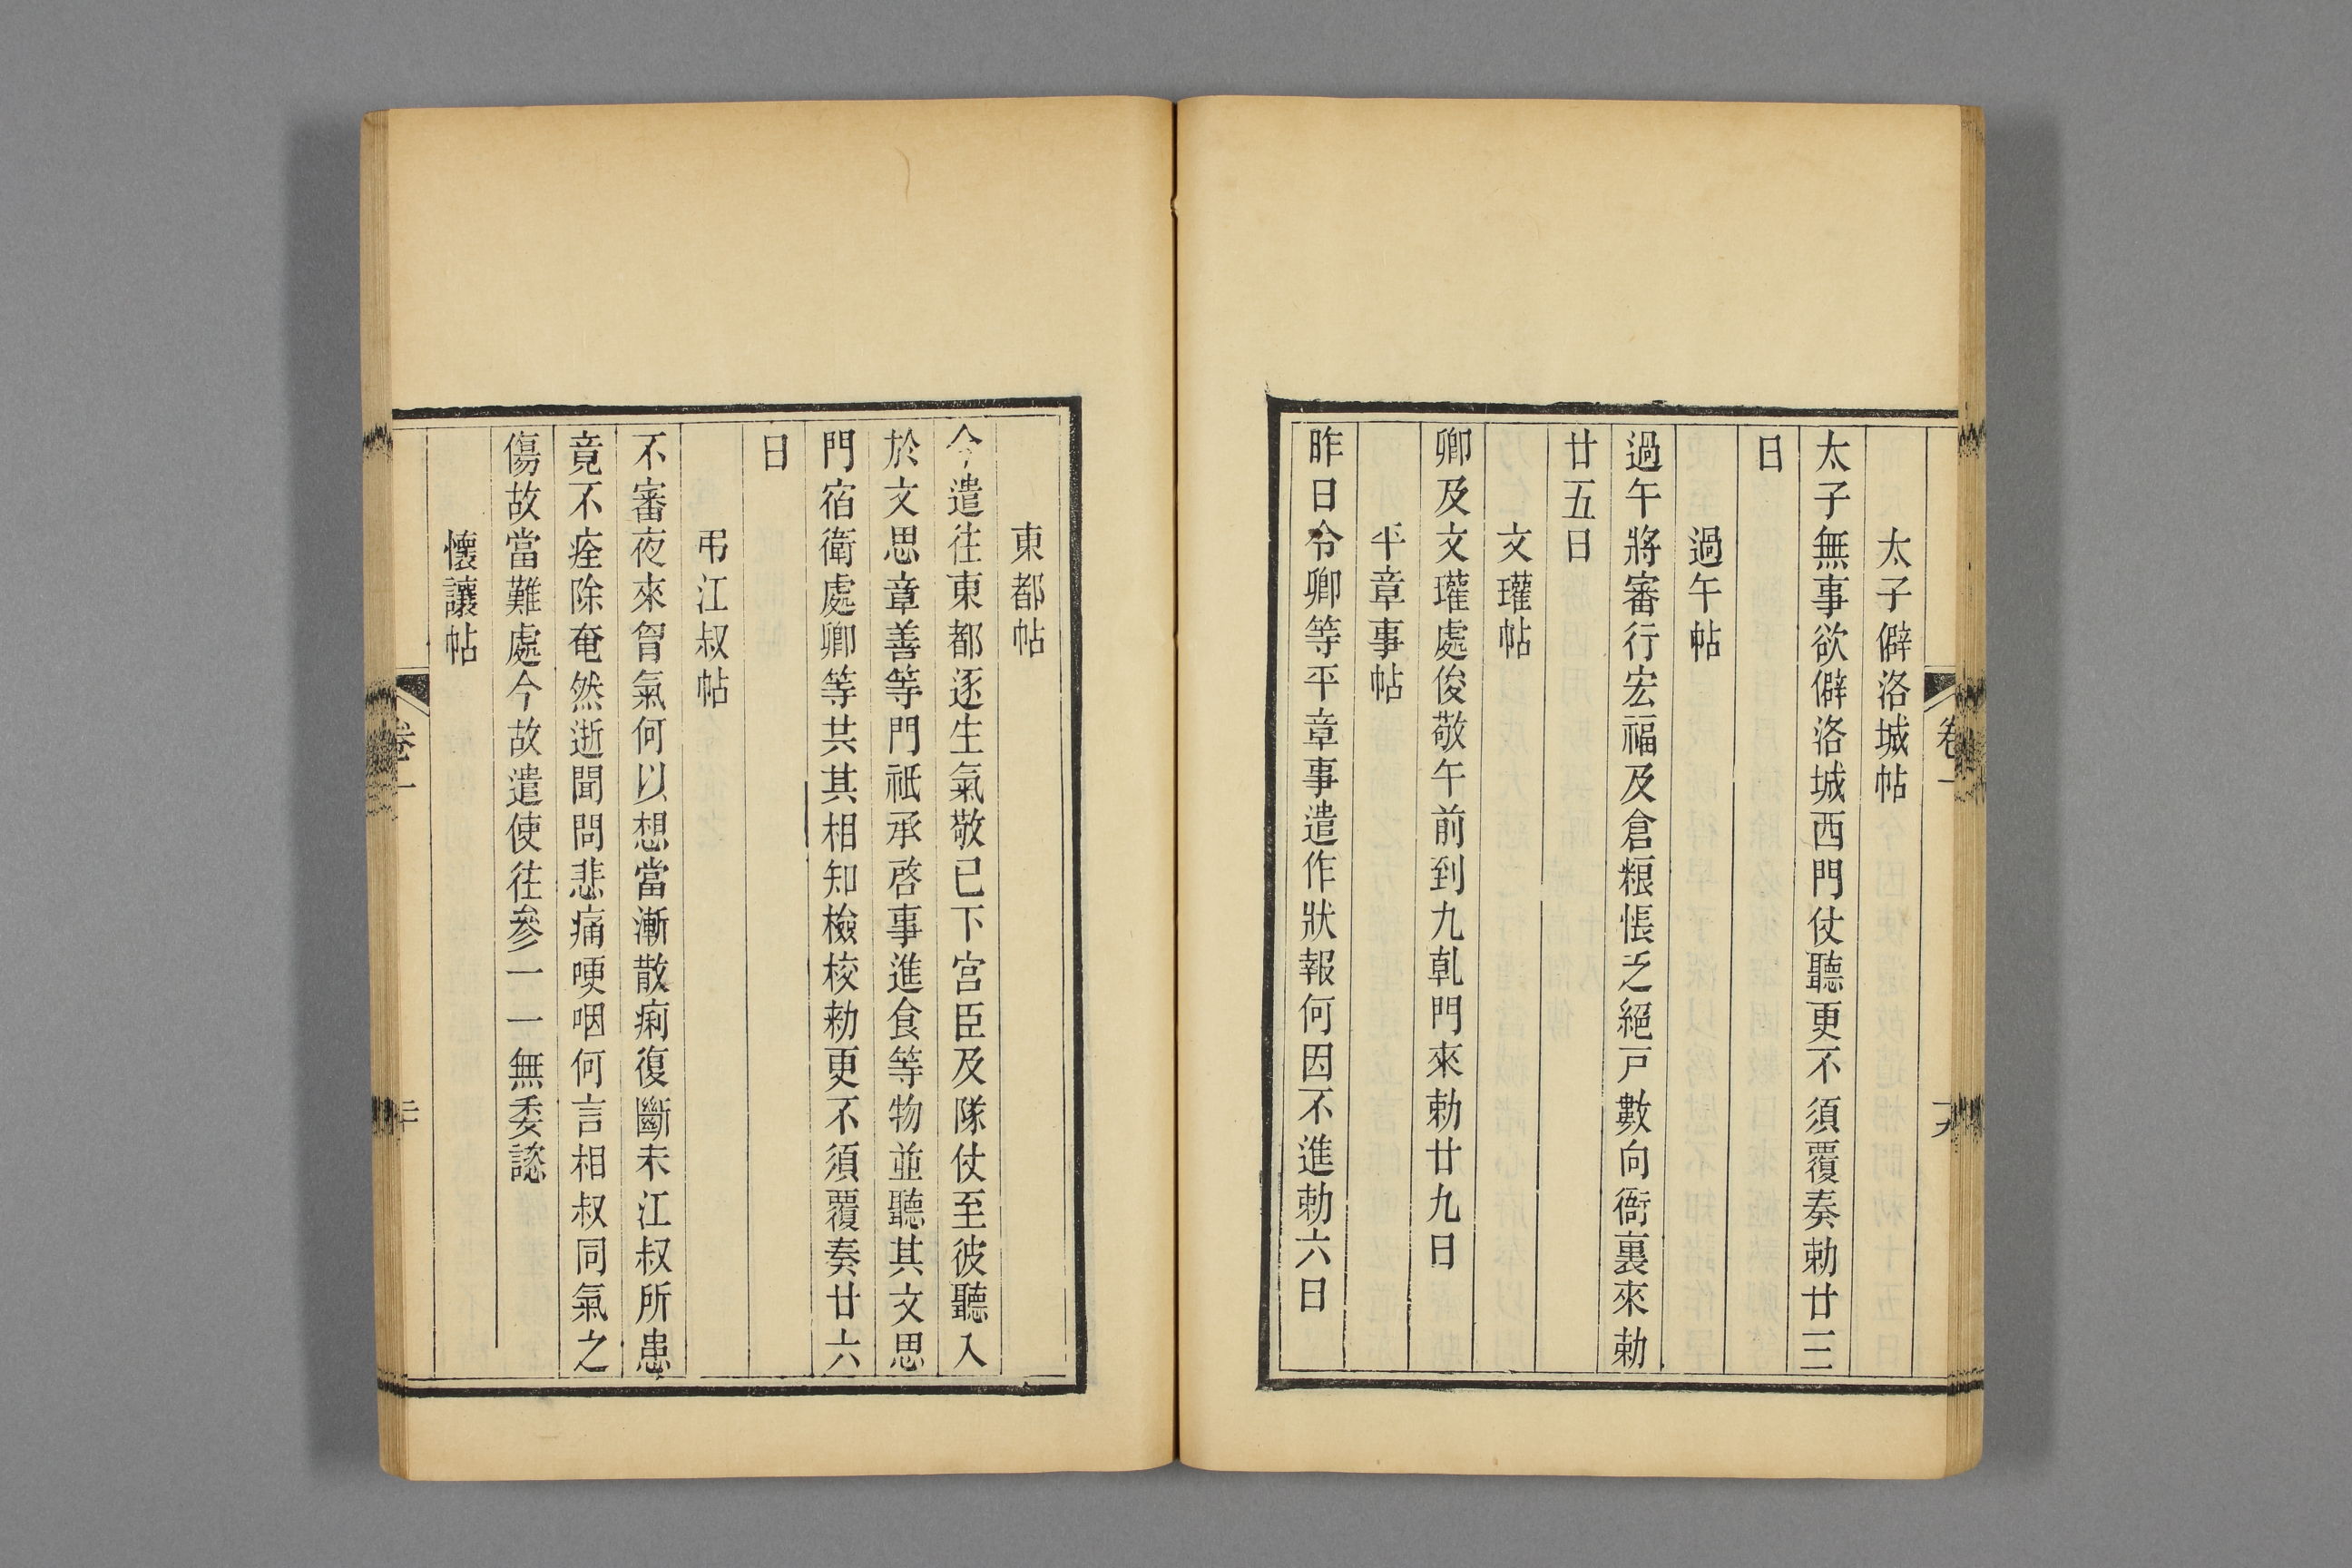 太子僻洛城帖
太子無事欲僻洛城西門仗聽更不須覆奏勅廿三
日
過午帖
過午將審行宏福及倉粮悵乏絕戸數向衙裏來勅
廿五日
文瓘帖
卿及文瓘處俊敬午前到九乹門來勅廿九日
平章事帖
昨日令卿等平章事遣作狀報何因不進勅六日
東都帖
今遣往東都逐生氣敬已下宫臣及隊仗至彼聽入
於文思章善等門祗承啓事進食等物並聽其文思
門宿衛處卿等共其相知檢校勅更不須覆奏廿六
日
弔江叔帖
不審夜來胷氣何以想當漸散痢復斷未江叔所患
竟不痊除奄然逝聞問悲痛哽咽何言相叔同氣之
傷故當難處今故遣使往參一一無委諮
懷讓帖
卷一